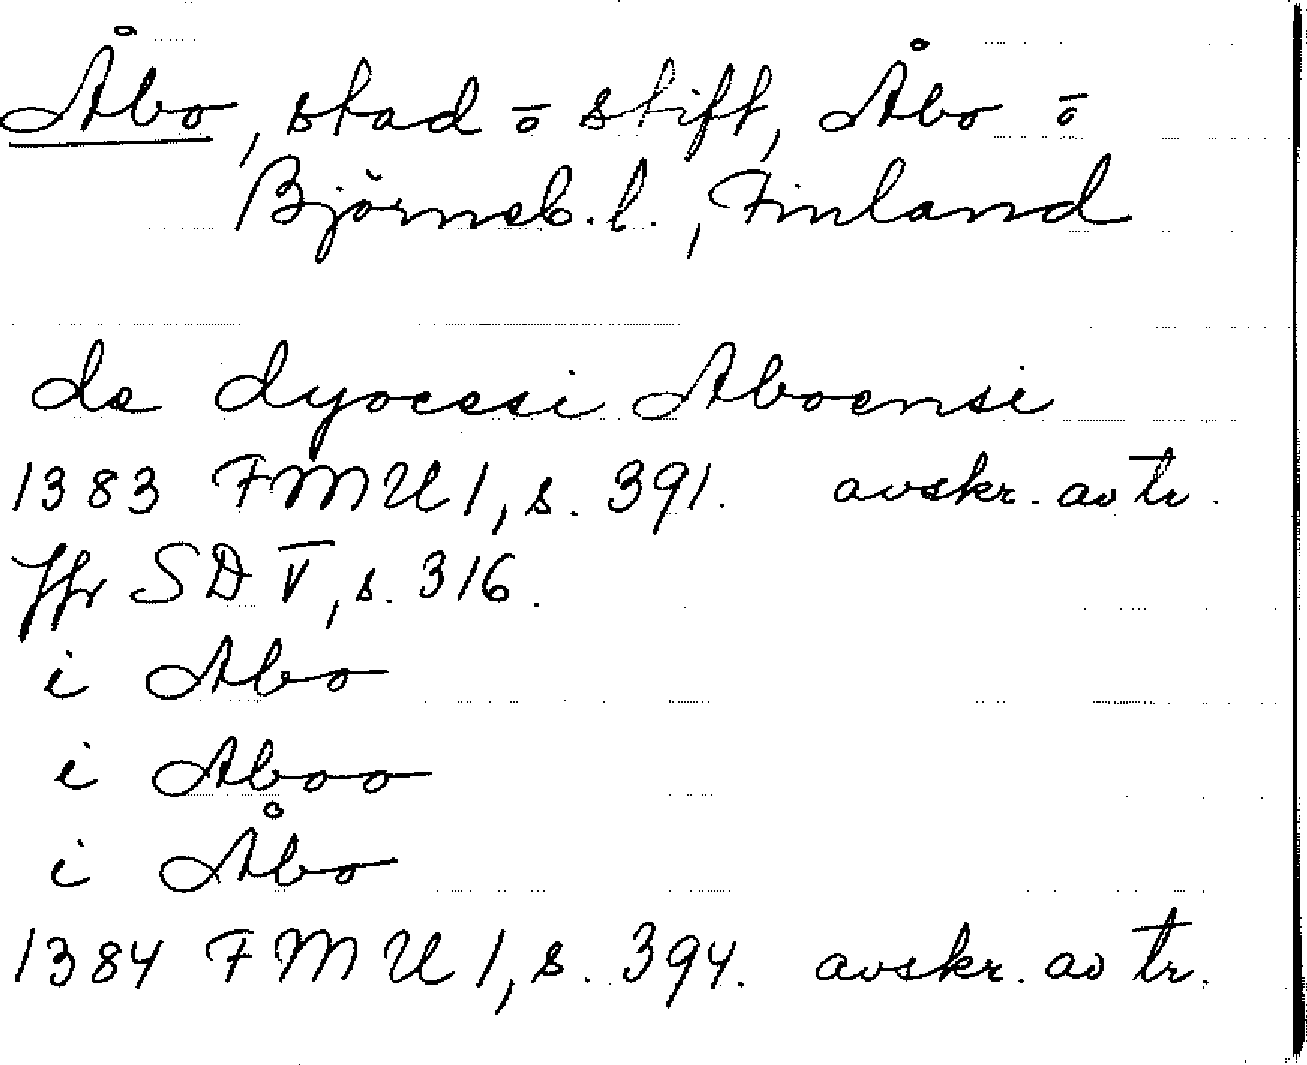 Åbo, stad o̅ stift, Åbo o̅
Björneb. l., Finland
de dyocesi Aboensi
1383 FMU 1, s. 391. avskr. av tr.
Jfr SD V, s. 316.
i Abo
i Aboo
i Åbo
1384 FMU 1, s. 394. avskr. av tr.